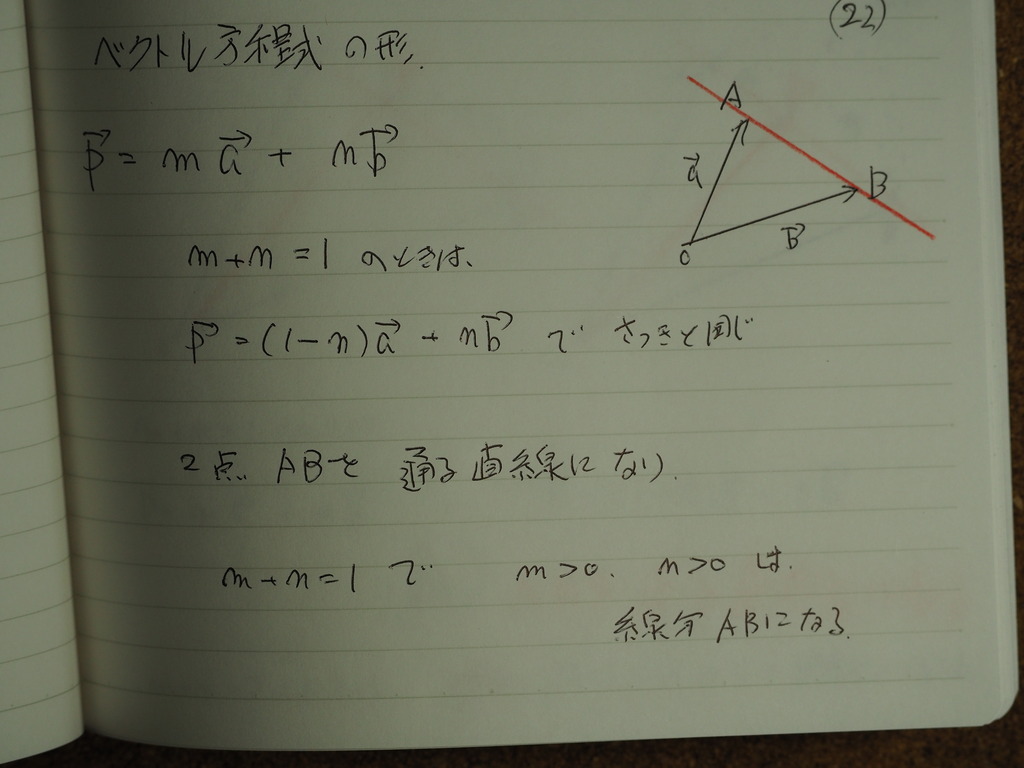 (22)
ベクトル方程式の形.
p⃗ = m a⃗ + n b⃗
A
a⃗
B
b⃗
O
m+n=1 のときは、
p⃗ = (1-n)a⃗ + n b⃗ で さっきと同じ
2点 ABを 通る直線になり.
m+n=1 で m>0. n>0 は.
線分 ABになる.